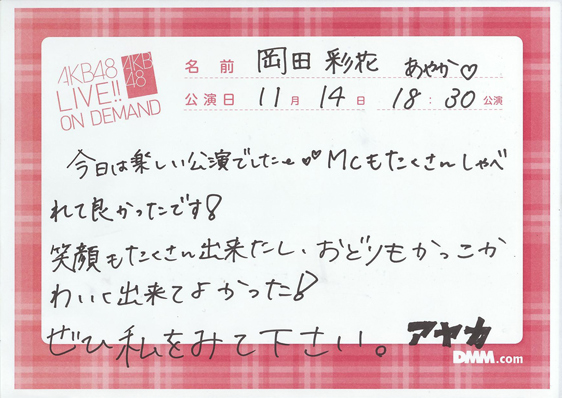 AKB48
LIVE!!
ON DEMAND
AKB
48
名前 岡田彩花 あやか♡
公演日 11月14日 18:30公演
今日は楽しい公演でしたぁ♡♡MCもたくさんしゃべ
れて良かったです!
笑顔もたくさん出来たし、おどりもかっこか
わいく出来てよかった!
ぜひ私をみて下さい。
アヤカ
DMM.com